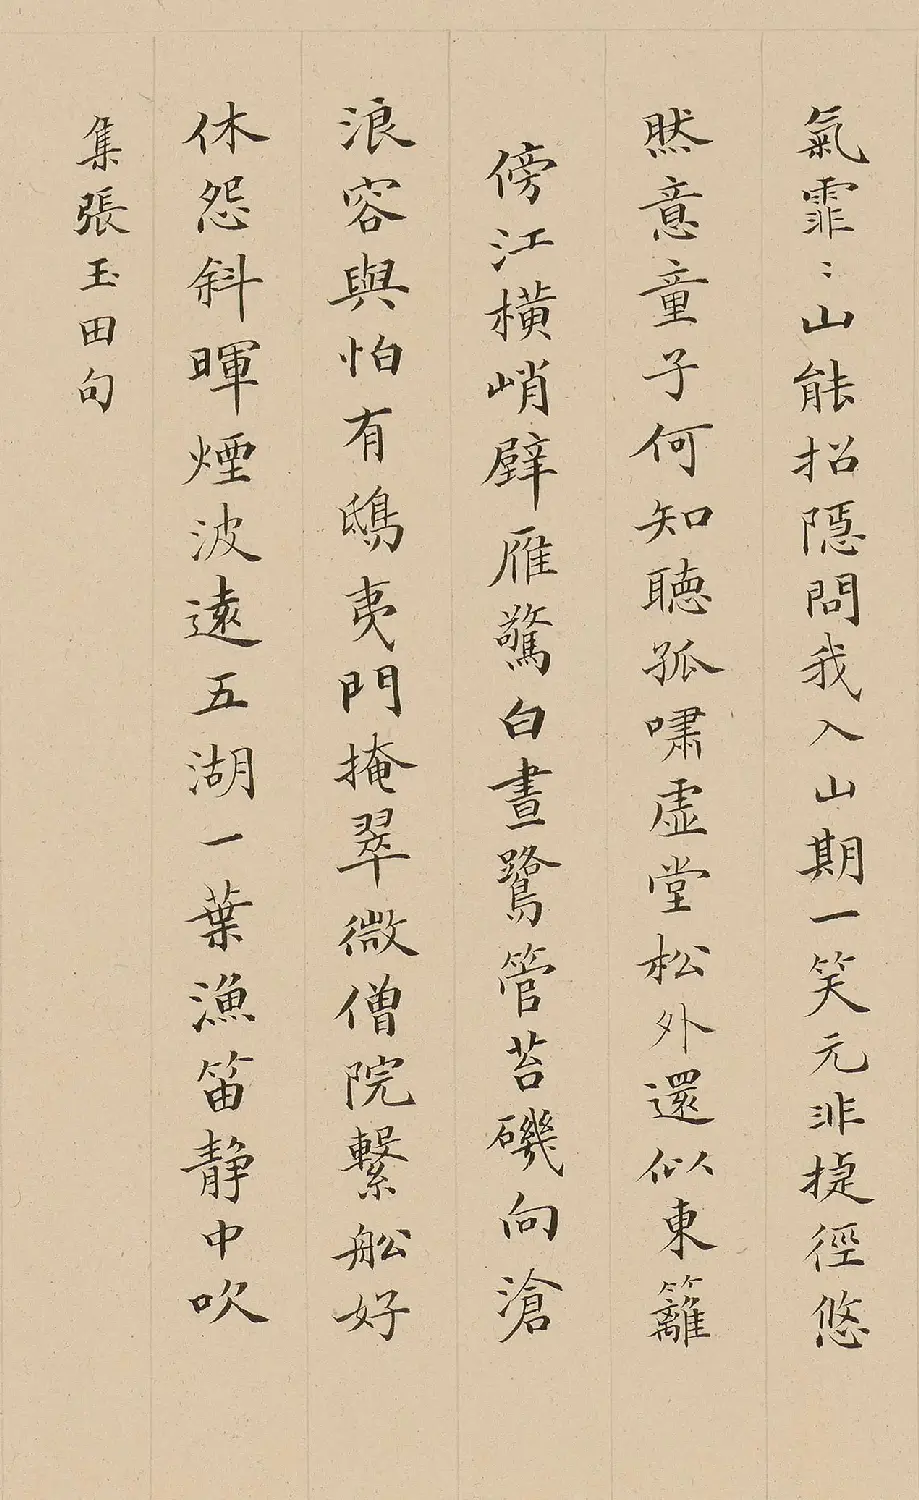 氣霏〻山能招隱問我入山期一笑元非捷徑悠
然意童子何知聴孤嘯虚堂松外還似東籬
傍江橫峭壁雁驚白晝鷺管苔磯向滄
浪容與怕有鴟夷門掩翠微僧院繫舩好
休怨斜暉煙波遠五湖一葉漁笛静中吹
集張玉田句